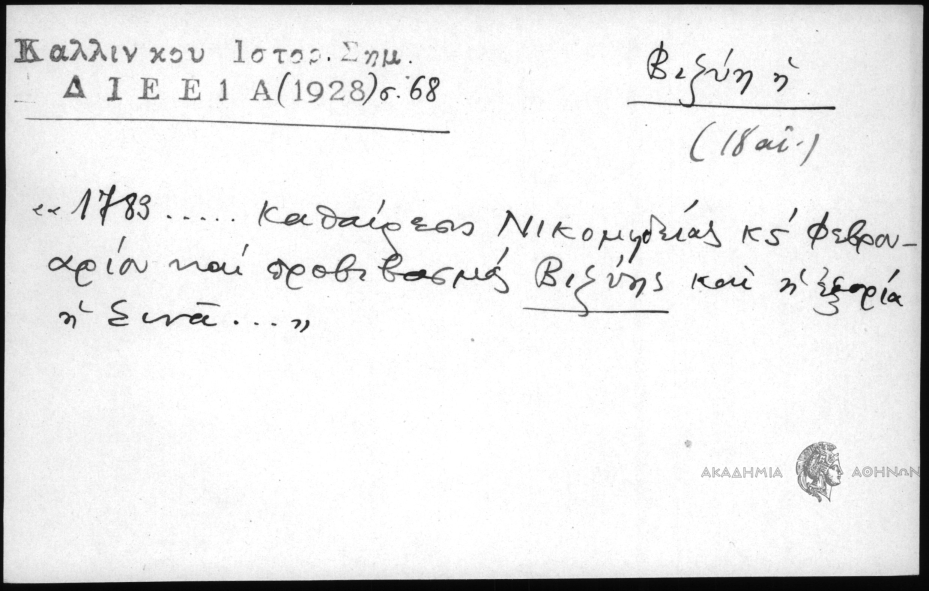 Καλλιν κου Ιστορ. Σημ.
ΔΙΕΕ1Α(1928)σ.68
Βιζύη ἡ
(18 αἰ.)
«1783 ..... καθαίρεσις Νικομηδείας κϛ́ Φεβρου-
αρίου καί προβιβασμός Βιζύης καὶ ἡ ἐξορία
ἡ Σινᾶ ...»
ΑΚΑΔΗΜΙΑ ΑΘΗΝΩΝ